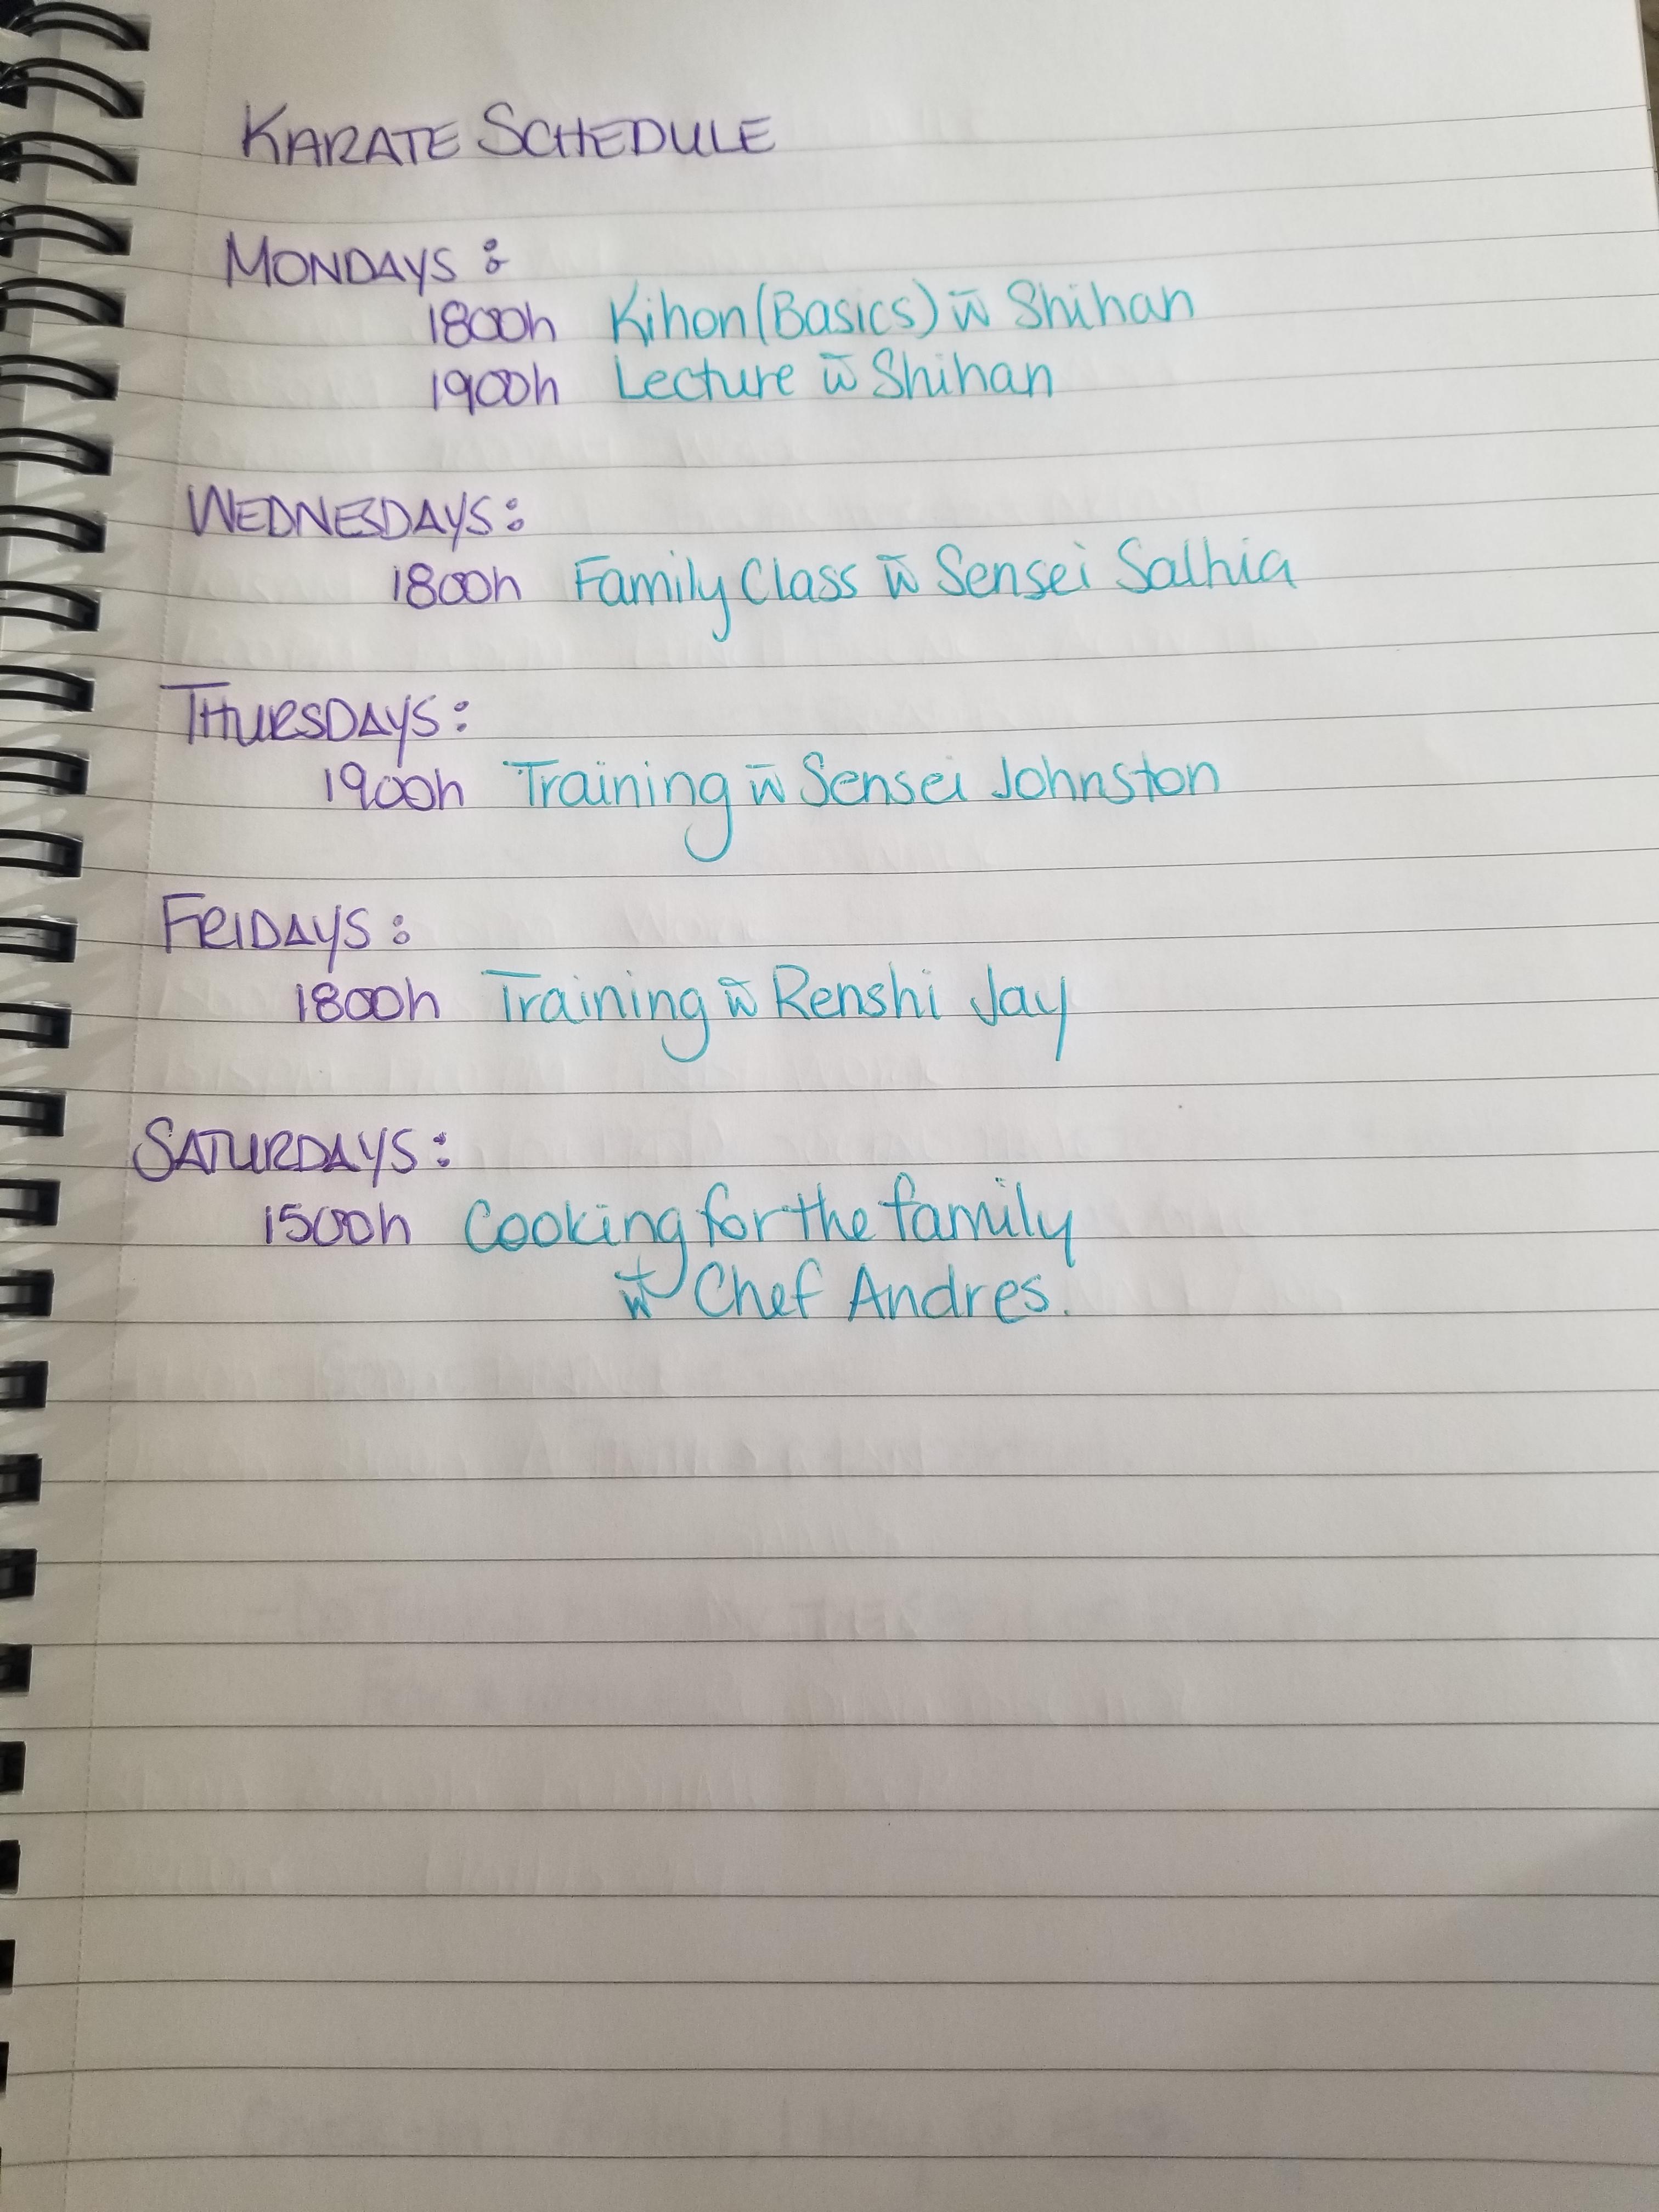 KARATE SCHEDULE
MONDAYS:
1800h Kihon (Basics) w̄ Shihan
1900h Lecture w̄ Shihan
WEDNESDAYS:
1800h Family Class w̄ Sensei Salhia
THURSDAYS:
1900h Training w̄ Sensei Johnston
FRIDAYS:
1800h Training w̄ Renshi Jay
SATURDAYS:
1500h Cooking for the family
w̄ Chef Andres.